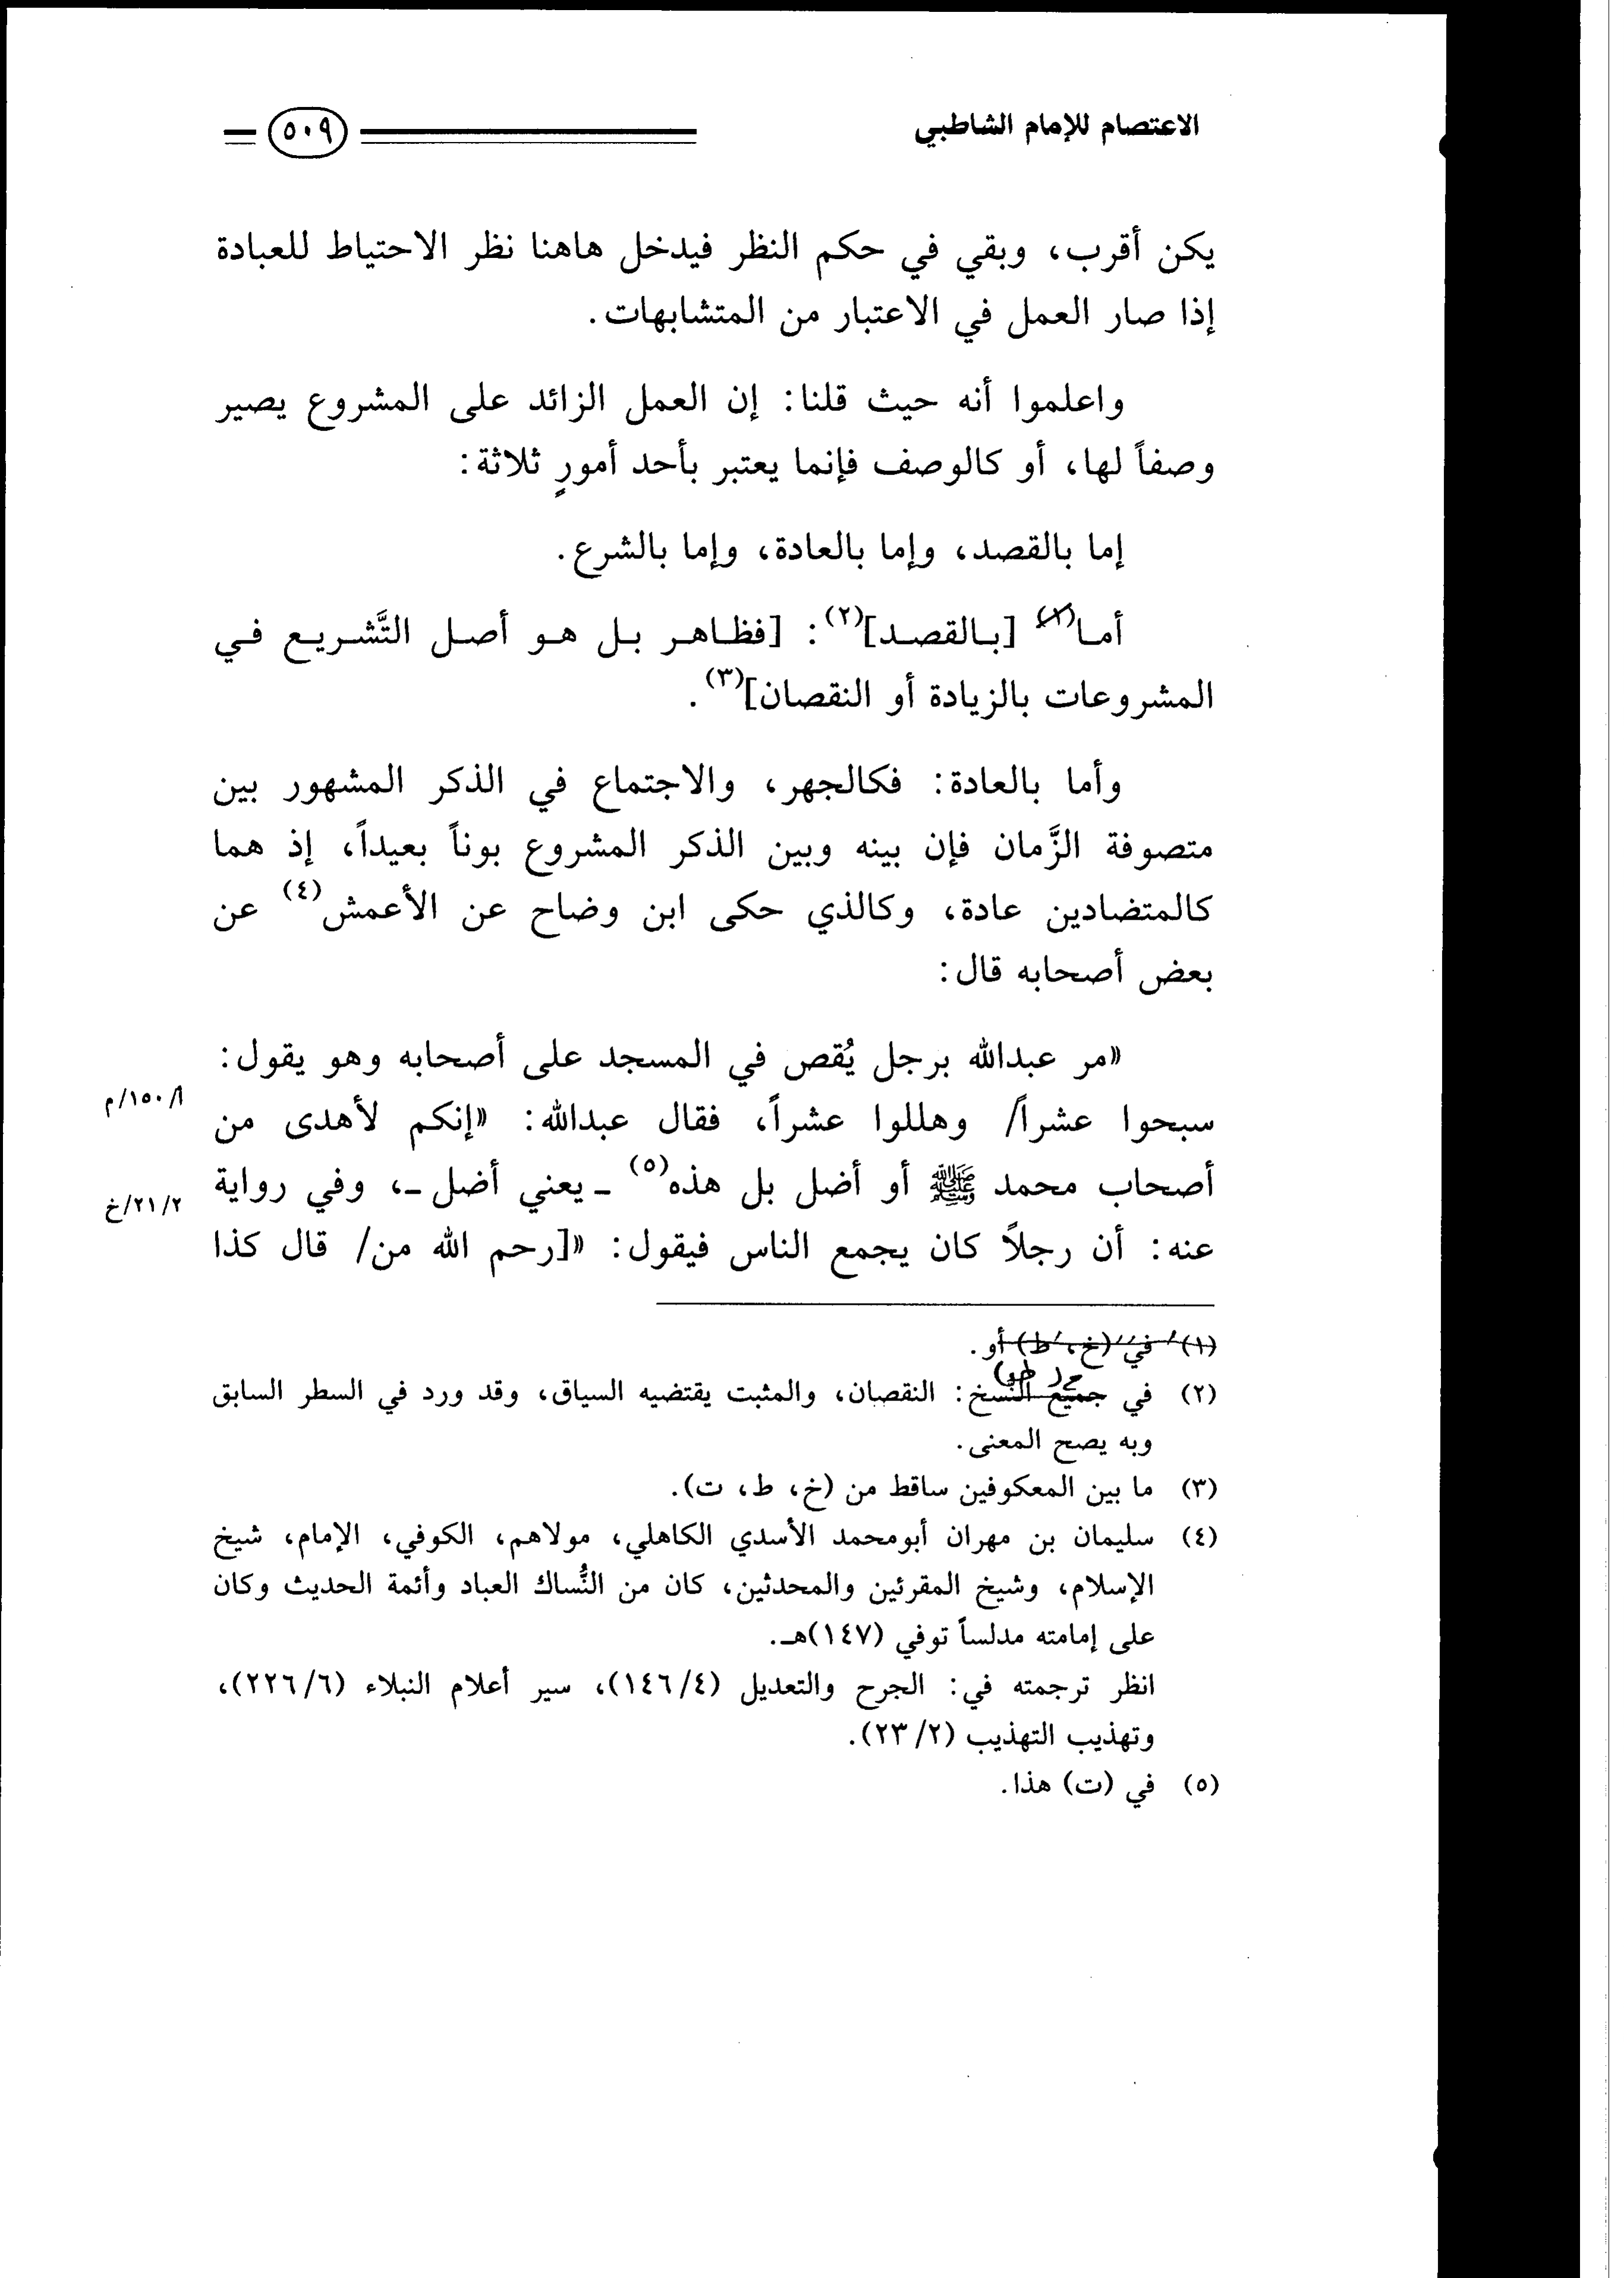 الاعتصام للإمام الشاطبي
٥٠٩
يكن أقرب، وبقي في حكم النظر فيدخل هاهنا نظر الاحتياط للعبادة
إذا صار العمل في الاعتبار من المتشابهات.
واعلموا أنه حيث قلنا: إن العمل الزائد على المشروع يصير
وصفاً لها، أو كالوصف فإنما يعتبر بأحد أمورٍ ثلاثة:
إما بالقصد، وإما بالعادة، وإما بالشرع.
أما [بالقصد](٢): [فظاهر بل هو أصل التَّشريع في
المشروعات بالزيادة أو النقصان](٣).
وأما بالعادة: فكالجهر، والاجتماع في الذكر المشهور بين
متصوفة الزَّمان فإن بينه وبين الذكر المشروع بوناً بعيداً، إذ هما
كالمتضادين عادة، وكالذي حكى ابن وضاح عن الأعمش(٤) عن
بعض أصحابه قال:
«مر عبدالله برجل يُقص في المسجد على أصحابه وهو يقول:
سبحوا عشراً/ وهللوا عشراً، فقال عبدالله: «إنكم لأهدى من
أ/١٥٠/م
أصحاب محمد ﷺ أو أضل بل هذه(٥) ـ يعني أضل ـ، وفي رواية
٢/٢١/خ
عنه: أن رجلاً كان يجمع الناس فيقول: «[رحم الله من/ قال كذا
(١) في (خ، ط) أو.
(٢) في جميع النسخ: النقصان، والمثبت يقتضيه السياق، وقد ورد في السطر السابق
وبه يصح المعنى.
(٣) ما بين المعكوفين ساقط من (خ، ط، ت).
(٤) سليمان بن مهران أبومحمد الأسدي الكاهلي، مولاهم، الكوفي، الإمام، شيخ
الإسلام، وشيخ المقرئين والمحدثين، كان من النُّساك العباد وأئمة الحديث وكان
على إمامته مدلساً توفي (١٤٧)هـ.
انظر ترجمته في: الجرح والتعديل (١٤٦/٤)، سير أعلام النبلاء (٢٢٦/٦)،
وتهذيب التهذيب (٢٣/٢).
(٥) في (ت) هذا.